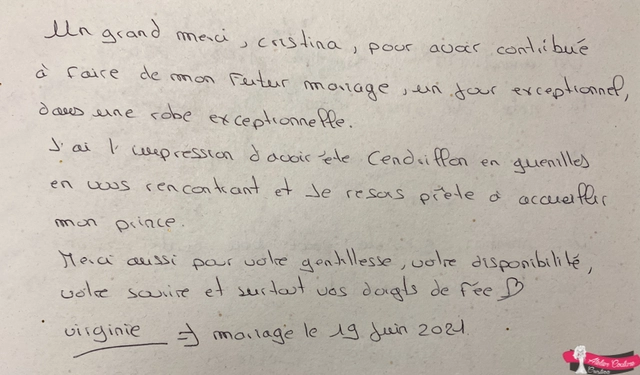 Un grand merci, cristina, pour avoir contribué
à faire de mon Futur mariage, un jour exceptionnel,
dans une robe exceptionnelle.
J'ai l'impression d'avoir été Cendrillon en guenilles
en vous rencontrant et je resors prête à accueillir
mon prince.
Merci aussi pour votre gentillesse, votre disponibilité,
votre sourire et surtout vos doigts de Fée ♡
virginie ⇒ mariage le 19 Juin 2021.